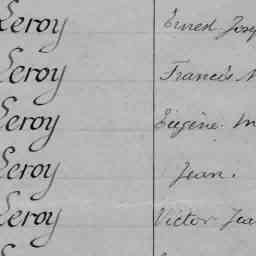 Leroy Ernest Josep
Leroy Francis M
Leroy Eugène M
Leroy Jean.
Leroy Victor Jea